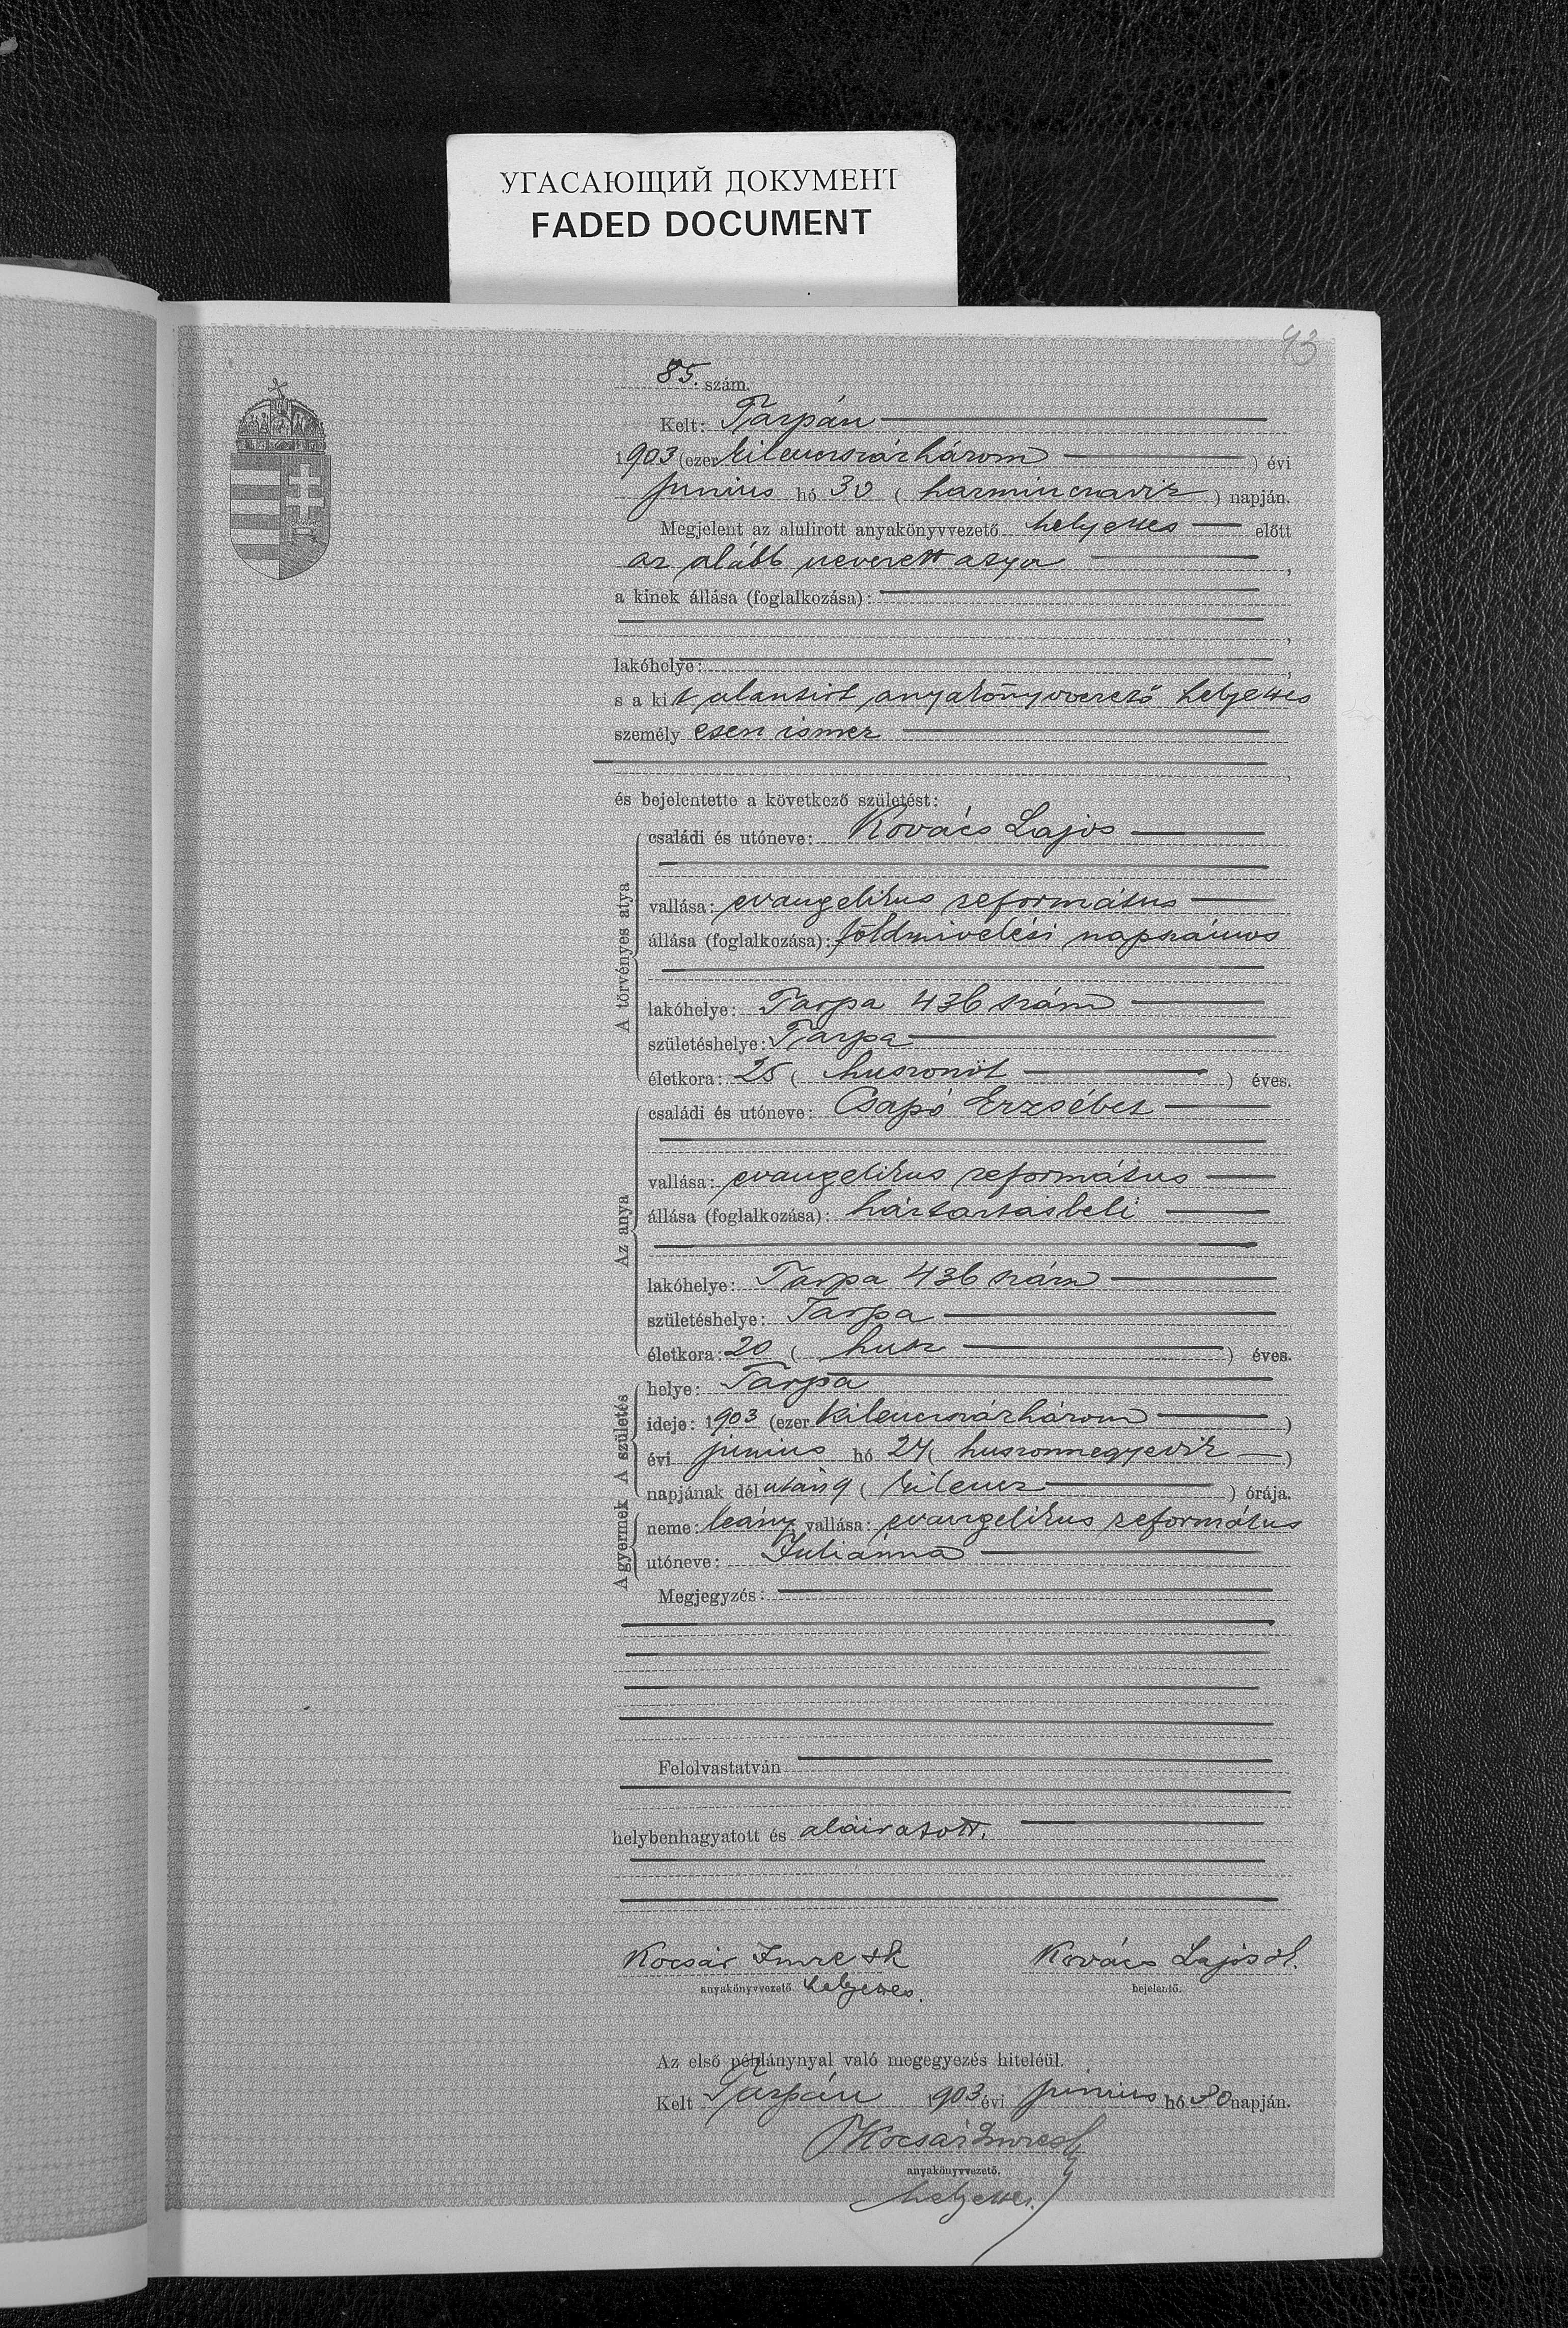 УГАСАЮЩИЙ ДОКУМЕНТ
FADED DOCUMENT
43
85. szám.
Kelt: Tarpán
1903 (ezer kilenczszázhárom) évi
junius hó 30 (harminczadik) napján.
Megjelent az alulirott anyakönyvvezető helyettes előtt
az alább nevezett atya,
a kinek állása (foglalkozása):
,
lakóhelye: ,
s a kit alantirt anyakönyvvezető helyettes
személyesen ismer
,
és bejelentette a következő születést:
A törvényes atya
családi és utóneve: Kovács Lajos
vallása: evangelikus református
állása (foglalkozása): földmivelési napszámos
lakóhelye: Tarpa 436 szám
születéshelye: Tarpa
életkora: 25 (huszonöt) éves.
Az anya
családi és utóneve: Csapó Erzsébet
vallása: evangelikus református
állása (foglalkozása): háztartásbeli
lakóhelye: Tarpa 436 szám
születéshelye: Tarpa
életkora: 20 (husz) éves.
A születés
helye: Tarpa
ideje: 1903 (ezer kilenczszázhárom)
évi junius hó 24 (huszonnegyedik)
napjának délután 9 (kilencz) órája.
A gyermek
neme: leány vallása: evangelikus református
utóneve: Juliánna
Megjegyzés:
Felolvastatván
helybenhagyatott és aláiratott.
Kocsár Imre sk Kovács Lajos sk.
anyakönyvvezető helyettes. bejelentő.
Az első példánynyal való megegyezés hiteléül.
Kelt Tarpán 1903 évi junius hó 30 napján.
Kocsár Imre sk
anyakönyvvezető.
helyettes.